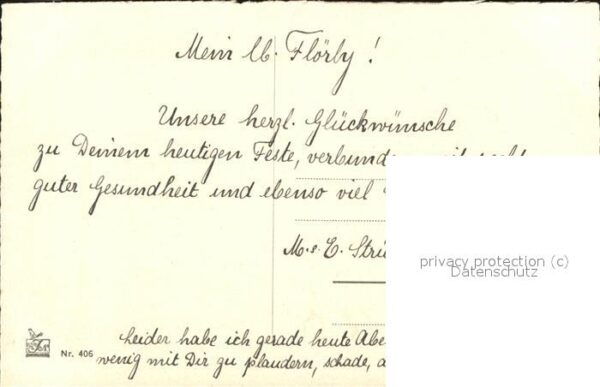 Mein lb. Flörly!
Unsere herzl. Glückwünsche
zu Deinem heutigen Feste,
guter Gesundheit und ebenso viel
M. E.
privacy protection (c)
Datenschutz
Leider habe ich gerade heute
Nr. 406
wenig mit Dir zu plaudern, schade,